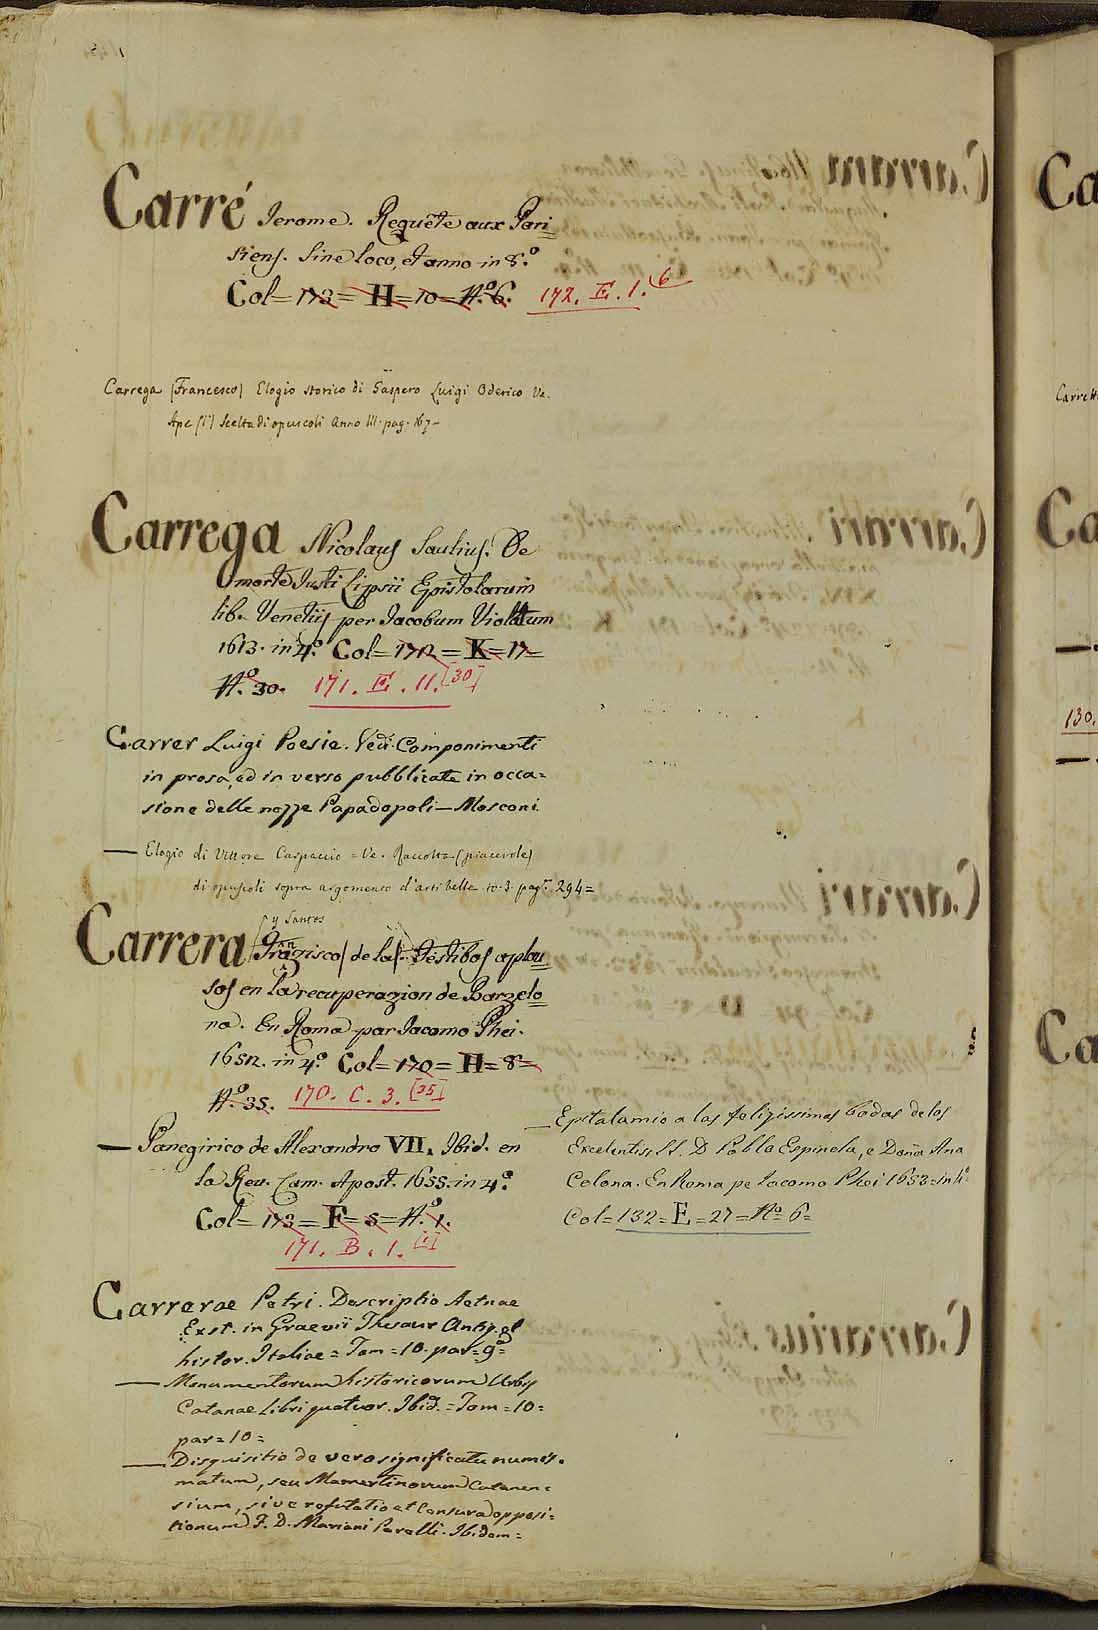 Carré Jerome. Requête aux Pari
siens. Sine loco, et anno in 8.º
Col= 173= H=10= N.º 6. 172. E. 1. 6
Carrega (Francesco) Elogio storico di Gaspero Luigi Oderico Ve.
Ape (l') Scelta di opuscoli Anno III. pag. 167-
Carrega Nicolaus Saulius. De
morte Justi Lipsii Epistolarum
lib. Venetiis per Jacobum Violatum
1613. in 4.º Col= 172= K= 17=
N.º 30. 171. E. 11. [30]
Carrer Luigi Poesie. Vedi Componimenti
in prosa, ed in verso pubblicate in occa=
sione delle nozze Papadopoli— Mosconi
— Elogio di Vittore Carpaccio = Ve. Raccolta (piacevole)
di opuscoli sopra argomento d'arti belle to. 3. pag. 294=
y Santos
Carrera Franzisco de la festibos aplau
sos en la recuperazion de Barzelo
na. En Roma par Jacomo Phei.
1652. in 4.º Col= 170= H= 8=
N.º 35. 170. C. 3. [35]
— Panegirico de Alexandro VII. Ibid. en
la Rev. Cam. Apost. 1655. in 4.º
Col= 173= F= 5= N.º 1.
171. B. 1. [1]
Carrerae Petri. Descriptio Aetnae
Exst. in Graevii Thesaur Antiq. et
histor. Italiae= Tom= 10. par= 9º=
— Monumentorum historicorum Urbis
Catanae Libri quatuor. Ibid.= Tom= 10=
par= 10=
— Disquisitio de vero significatu numis.
matum, seu Mamertinorum Catanen=
sium, sive refutatio et Censura opposi=
tionum F. D. Mariani Parelli. Ibidem=
— Epitalamio a las felizissimas bodas de los
Excelentiss. SS. D Pablo Espinola, e Dona Ana
Colona. En Roma pe Jacomo Phei 1653= in 4º
Col= 132= E= 27= Nº 6=
Ca
Carrett
Ca
—
130.
—
Ca